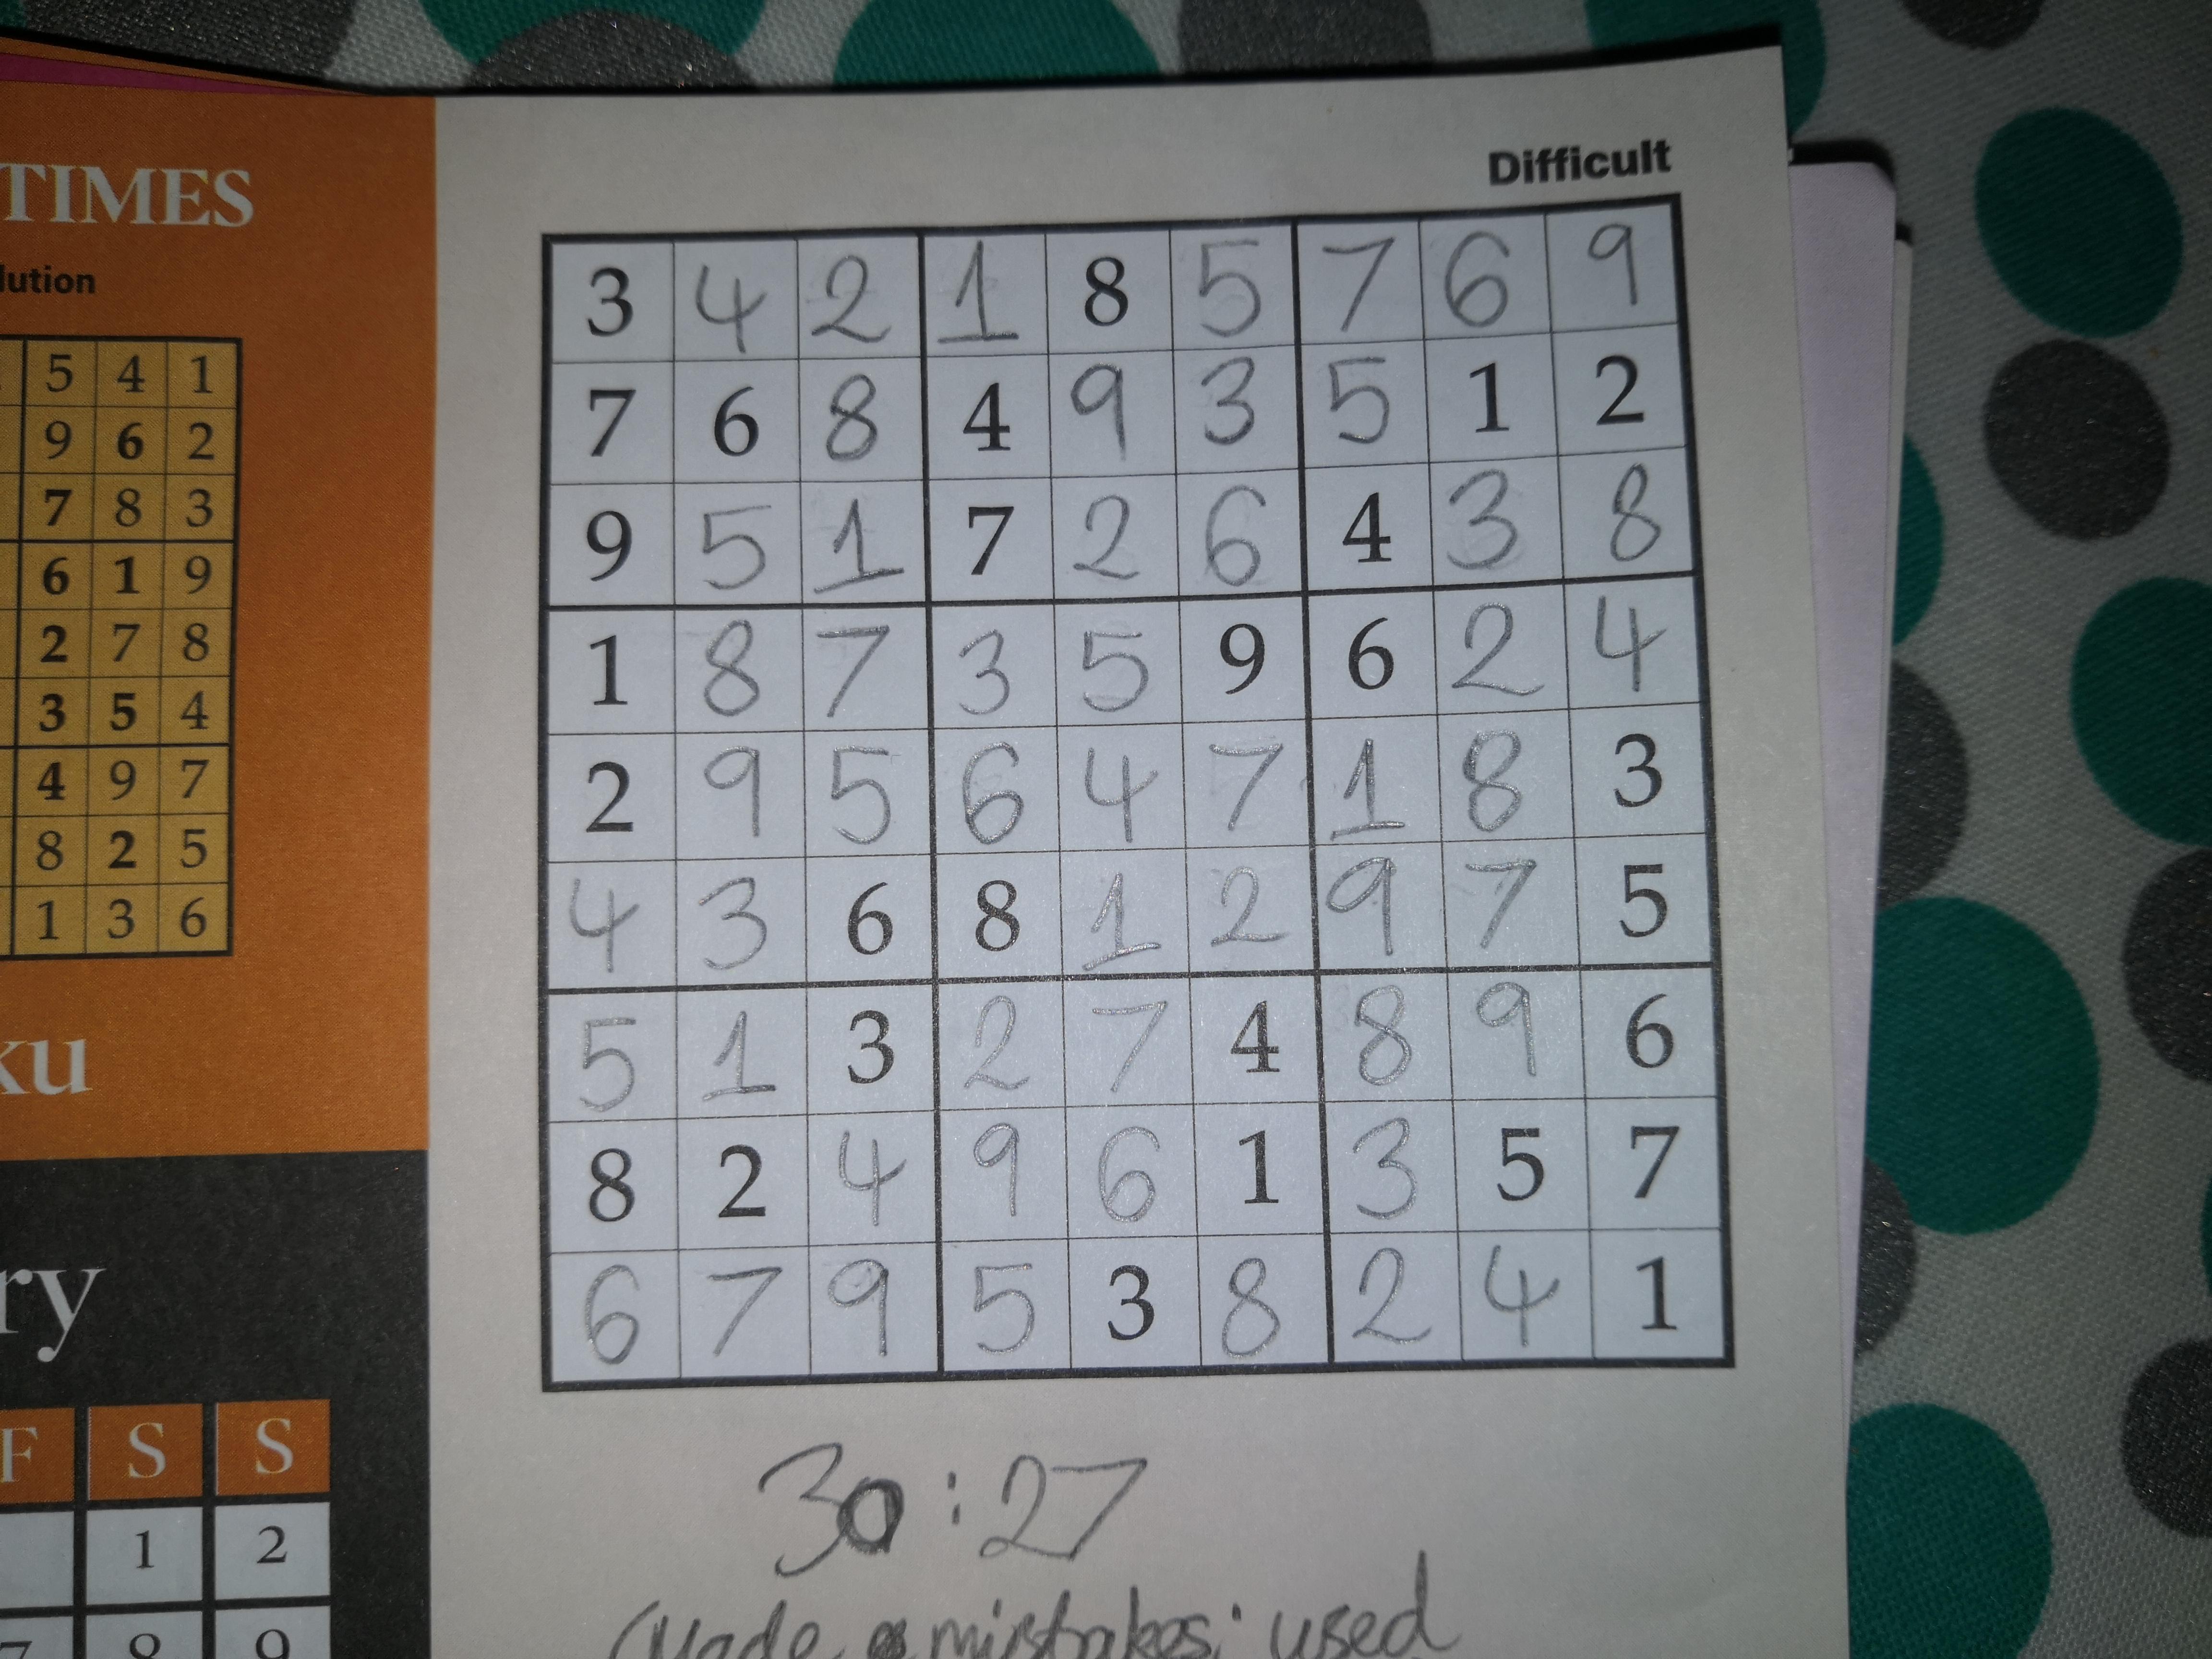 TIMES
lution
5 4 1
9 6 2
7 8 3
6 1 9
2 7 8
3 5 4
4 9 7
8 2 5
1 3 6
ku
ry
F S S
1 2
7 8 9
Difficult
3 4 2 1 8 5 7 6 9
7 6 8 4 9 3 5 1 2
9 5 1 7 2 6 4 3 8
1 8 7 3 5 9 6 2 4
2 9 5 6 4 7 1 8 3
4 3 6 8 1 2 9 7 5
5 1 3 2 7 4 8 9 6
8 2 4 9 6 1 3 5 7
6 7 9 5 3 8 2 4 1
30:27
(Made mistakes; used